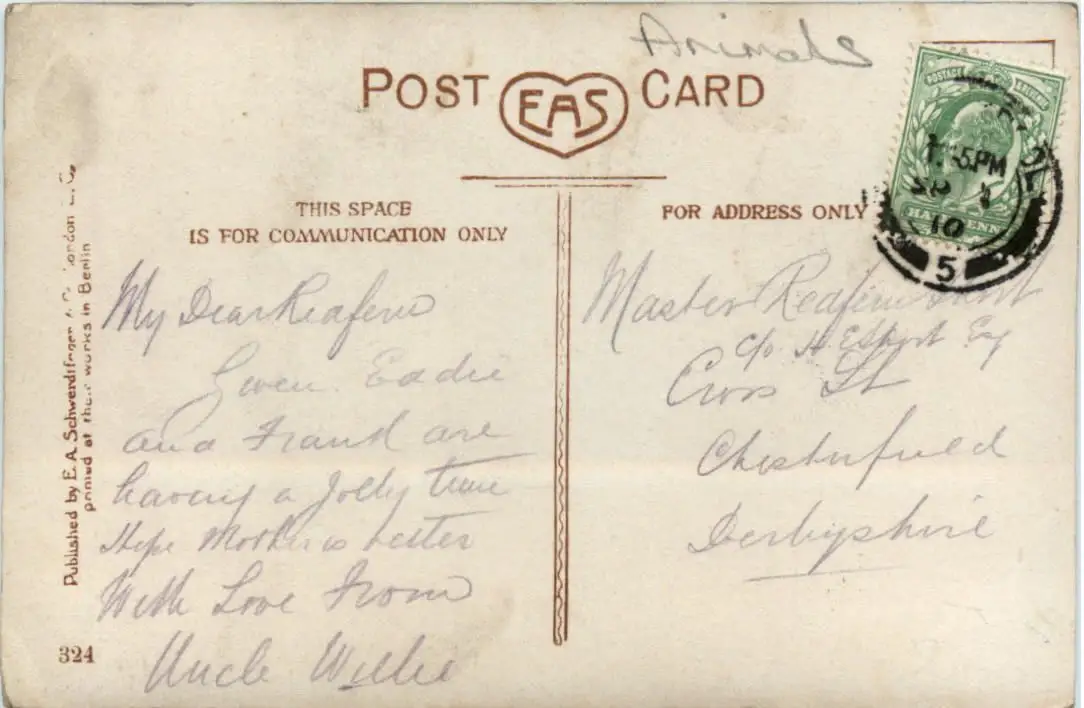 Animals
POST EAS CARD
THIS SPACE
IS FOR COMMUNICATION ONLY
FOR ADDRESS ONLY
POSTAGE
HALFPENNY
5PM
10
5
My Dear Reafern
Gwen Eddie
and Frank are
having a Jolly time
Hope Mother is better
With Love From
Uncle Willie
Master Reafern
c/o H Esq
Cross St
Chesterfield
Derbyshire
Published by E. A. Schwerdtfeger & Co London E.C.
printed at their works in Berlin
324